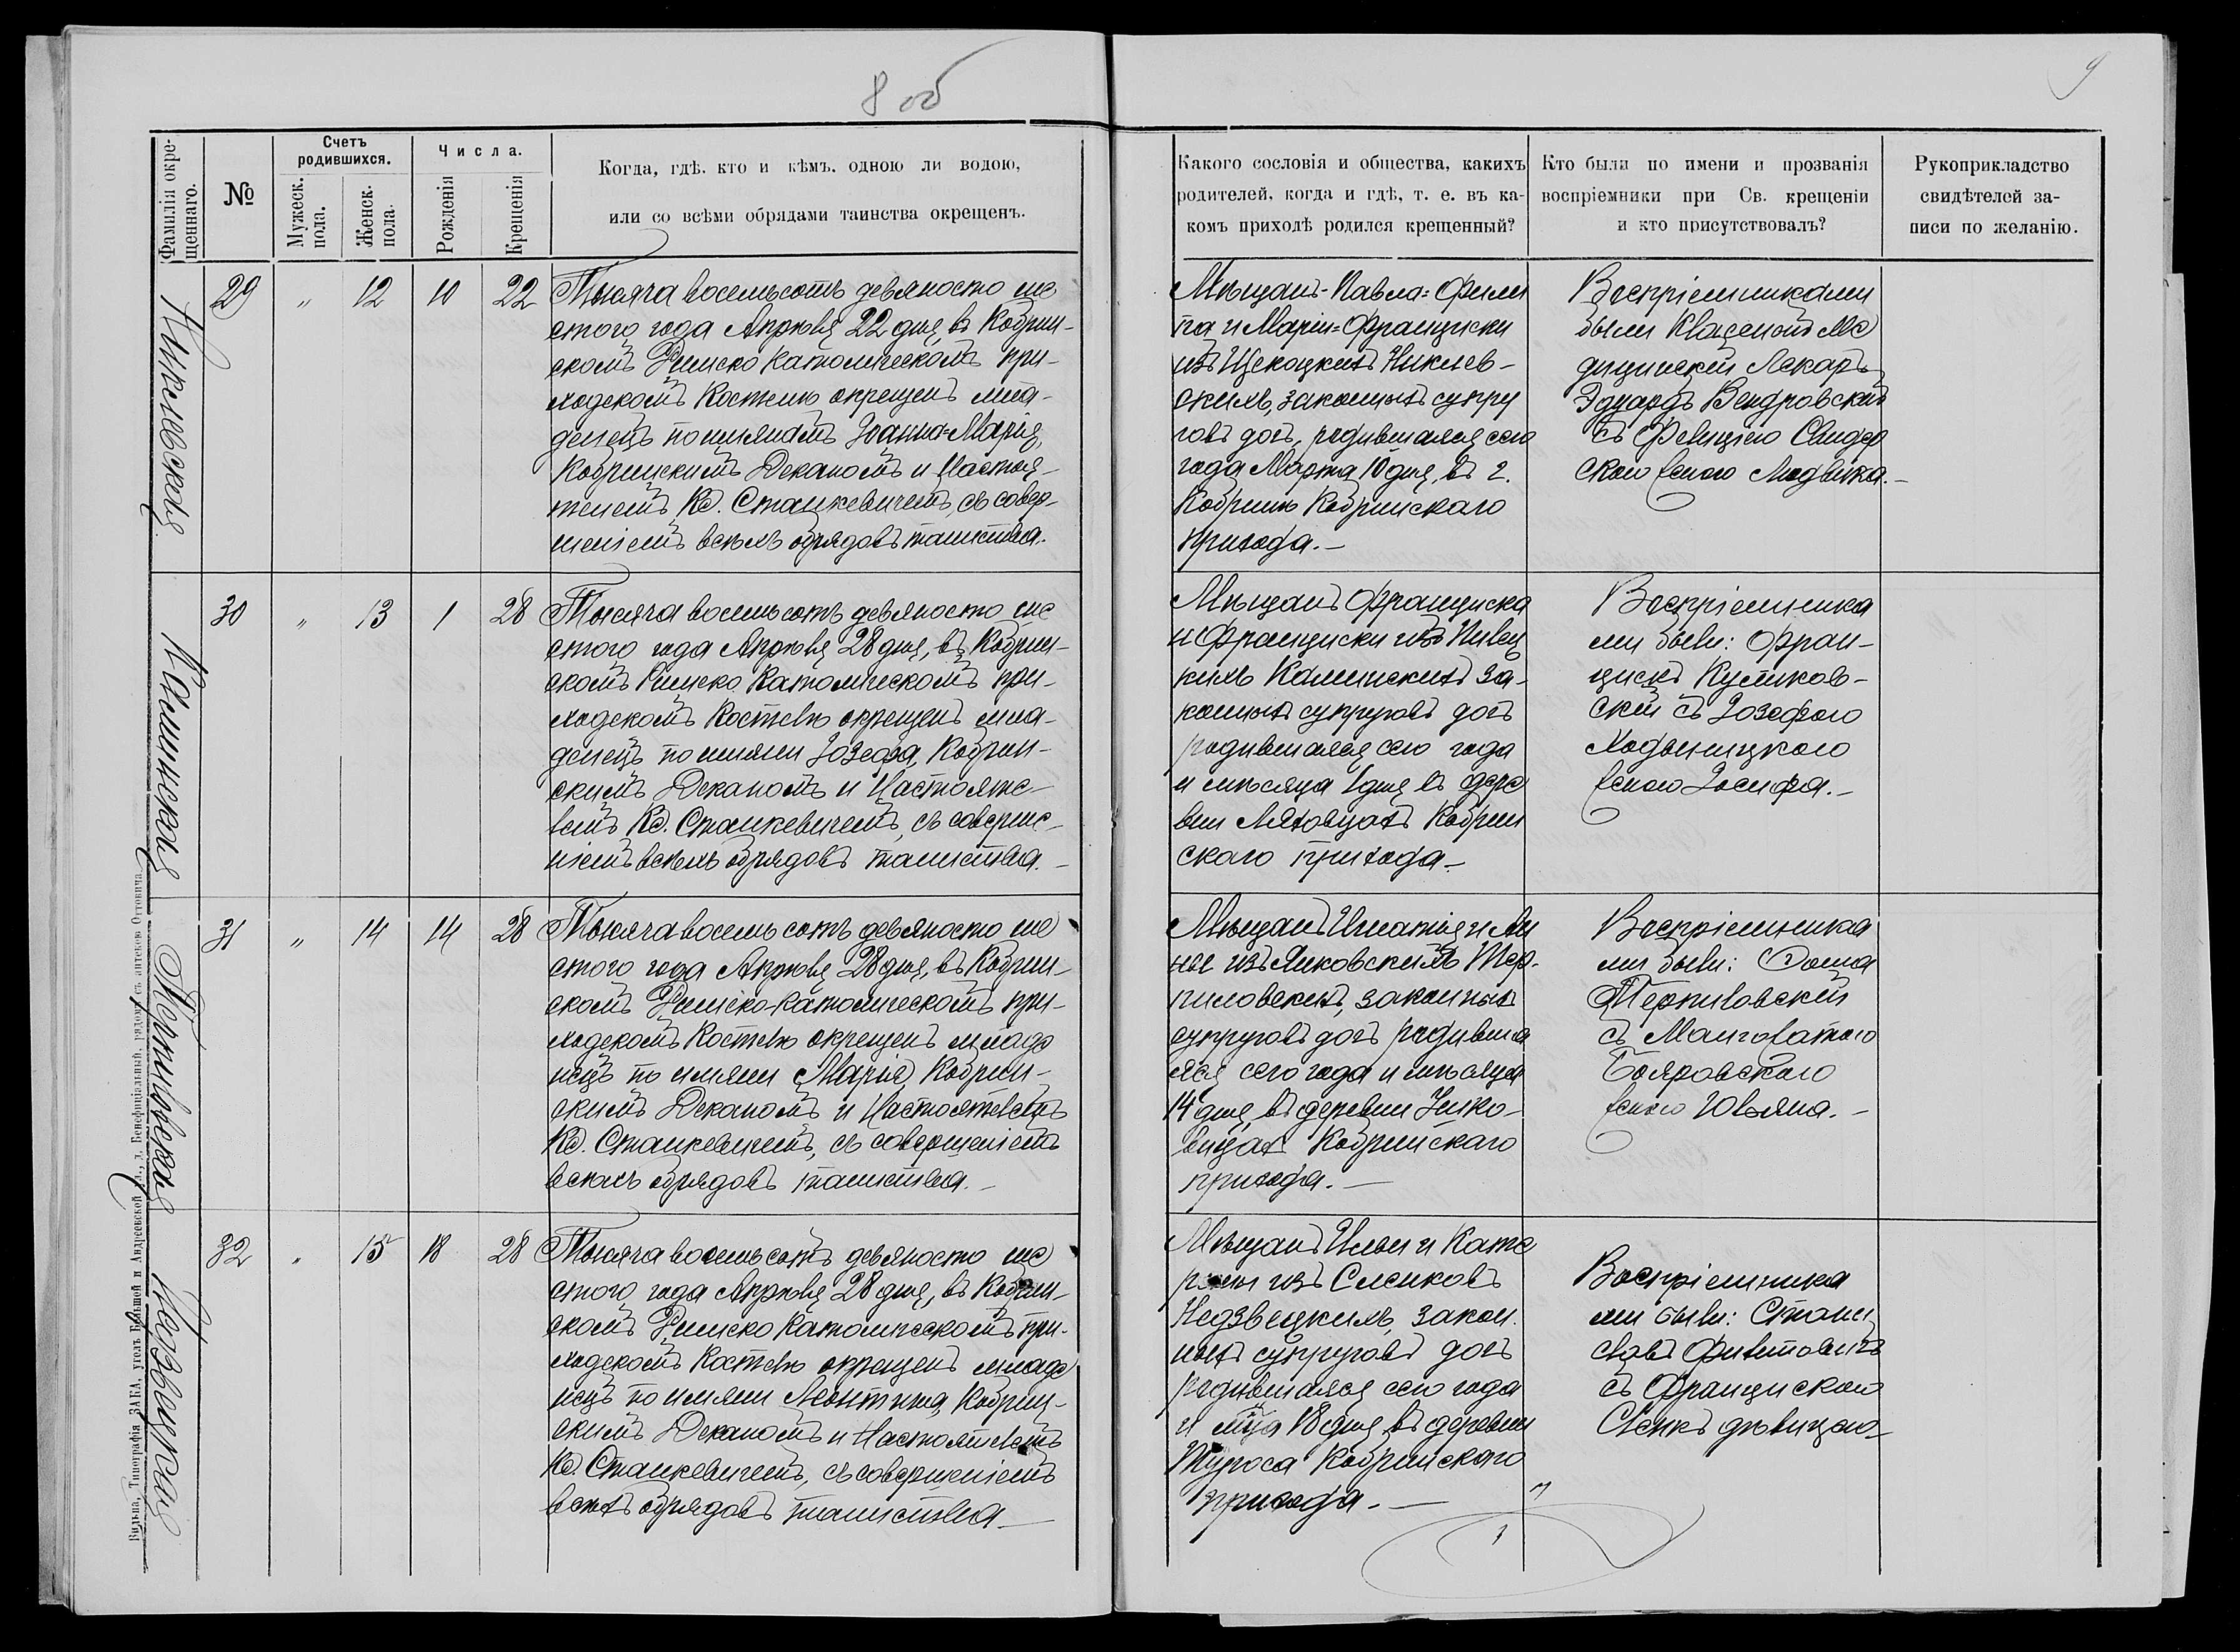 8 об
9
Фамилія окре-
щеннаго.
№
Счетъ
родившихся.
Мужеск.
пола.
Женск.
пола.
Числа.
Рожденія
Крещенія
Когда, гдѣ. кто и кѣмъ. одною ли водою,
или со всѣми обрядами таинства окрещенъ.
Какого сословія и общества, какихъ
родителей, когда и гдѣ, т. е. въ ка-
комъ приходѣ родился крещенный?
Кто были по имени и прозванія
воспріемники при Св. крещеніи
и кто присутствовалъ?
Рукоприкладство
свидѣтелей за-
писи по желанію.
Никлевская
29 " 12 10 22
Тысяча восемьсотъ девяносто ше
стого года Апрѣля 22 дня, въ Кобрин-
скомъ Римско Католическомъ при-
ходскомъ Костелѣ окрещенъ мла-
денецъ по имянамъ Іоанна=Марія,
Кобринскимъ Деканомъ и Настоя-
телемъ Кс. Станкевичемъ, съ совер-
шеніемъ всѣхъ обрядовъ таинства.
Мѣщанъ Павла=Фили
па и Маріи=Франциски
изъ Никлев-
скихъ, законныхъ супру
говъ дочь, родившаяся сего
года Марта 10 дня, въ г.
Кобринѣ Кобринскаго
прихода.-
Воспріемниками
были Классный Ме
дицинскій Лекарь
Эдуардъ Вендровскій
съ Фелиціею Свидер
скою женою Людвика.-
Каминская
30 " 13 1 28
Тысяча восемьсотъ девяносто ше
стого года Апрѣля 28 дня, въ Кобрин-
скомъ Римско Католическомъ при-
ходскомъ Костелѣ окрещенъ мла-
денецъ по имяни Іозефа, Кобрин-
скимъ Деканомъ и Настояте-
лемъ Кс. Станкевичемъ, съ соверше-
ніемъ всѣхъ обрядовъ таинства.-
Мѣщанъ Франциска
и Франциски изъ Пивец
кихъ Каминскихъ за-
конныхъ супруговъ дочь
родившаяся сего года
и мѣсяца 1 дня въ дере
вни Лѧховцахъ Кобрин
скаго прихода.-
Воспріемника
ми были: Фран-
цискъ Куликов-
скій съ Іозефою
Ходыницкою
женою Іосифа.-
Терпиловская
31 " 14 14 28
Тысяча восемьсотъ девяносто ше
стого года Апрѣля 28 дня, въ Кобрин-
скомъ Римско-Католическомъ при-
ходскомъ Костелѣ окрещенъ младе
нецъ по имяни Марія, Кобрин-
скимъ Деканомъ и Настоятелемъ
Кс. Станкевичемъ, съ совершеніемъ
всѣхъ обрядовъ таинства.-
Мѣщанъ Игнатія и Ан
ны изъ Янковскихъ Тер-
пиловскихъ, законныхъ
супруговъ дочь родивша
яся сего года и мѣсяца
14 дня, въ деревни
Кобринскаго
прихода.-
Воспріемника
ми были: Фома
Терпиловскій
съ Малгожатою
Бояровскою
женою Юльяна.-
Недзвецкая
32 " 15 18 28
Тысяча восемьсотъ девяносто ше
стого года Апрѣля 28 дня, въ Кобрин-
скомъ Римско Католическомъ при-
ходскомъ Костелѣ окрещенъ младе
нецъ по имяни Леонтина, Кобрин-
скимъ Деканомъ и Настоятелемъ
Кс. Станкевичемъ, съ совершеніемъ
всѣхъ обрядовъ таинства-
Мѣщанъ Ильи и Кате
рины изъ Сленковъ
Недзвецкихъ, закон-
ныхъ супруговъ дочь
родившаяся сего года
и мца 18 дня въ деревни
Туроса Кобринскаго
прихода.-
Воспріемника
ми были: Стани
славъ Филиповичъ
съ Францискою
Сленкъ дѣвицею-
Вильна, Типографія ЗАКА, уголъ Большой и Андреевской ул., д. Бенефиціальный, рядомъ съ аптекою Оттовича.